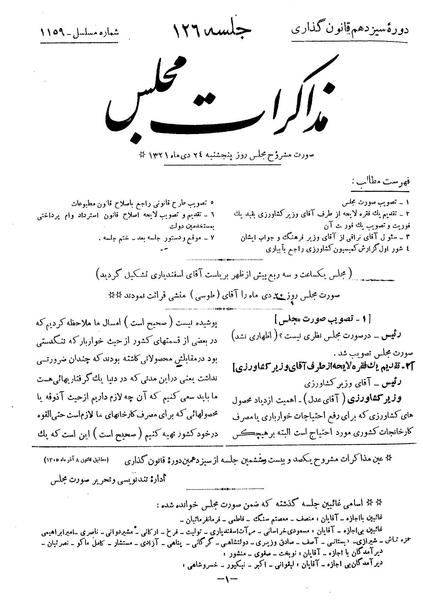 دورهٔ سیزدهم قانون گذاری
جلسه ۱۲۶
شماره مسلسل - ۱۱۵۹
مذاکرات مجلس
صورت مشروح مجلس روز پنجشنبه ۲۴ دی ماه ۱۳۲۱ *
فهرست مطالب:
۱ - تصویب صورت مجلس
۲ - تقدیم یك فقره لایحه از طرف آقای وزیر کشاورزی بقید یك
فوریت و تصویب یك فوریت آن
۳ - سئوال آقای نراقی از آقای وزیر فرهنگ و جواب ایشان
۴ - شور اول گزارش کمیسیون کشاورزی راجع بآبیاری
۵ - تصویب طرح قانونی راجع باصلاح قانون مطبوعات
۶ - تقدیم و تصویب لایحه اصلاح قانون استرداد وام پرداختی
بمستخدمین دولت
۷ - موقع و دستور جلسه بعد - ختم جلسه.
(مجلس یکساعت و سه ربع پیش از ظهر بریاست آقای اسفندیاری تشکیل گردید)
صورت مجلس روز ۲۰ دی ماه را آقای (طوسی) منشی قرائت نمودند **
[۱ - تصویب صورت مجلس]
رئیس - در صورت مجلس نظری نیست؟ (اظهاری نشد)
صورت مجلس تصویب شد.
[۲ - تقدیم یك فقره لایحه از طرف آقای وزیر کشاورزی]
رئیس - آقای وزیر کشاورزی
وزیر کشاورزی (آقای عدل) - اهمیت ازدیاد محصول
های کشاورزی که برای رفع احتیاجات خوارباری یا مصرف
کارخانجات کشوری مورد احتیاج است البته بر هیچکس
پوشیده نیست (صحیح است) امسال ما ملاحظه کردیم که
در بعضی از قسمتهای کشور از حیث خواربار که تنگدستی
بود در مقابلش محصولاتی کاشته بودند که چندان ضرورتی
نداشت بعنی در این مدتی که در دنیا یك گرفتاریهائی هست
ما باید سعی کنیم که آن چه لازم داریم از حیث آذوقه یا
محصولهائی که برای مصرف کارخانهای ما لازم است حتی القوه
در خود کشور تهیه کنیم (صحیح است) این است که یك
* عین مذاکرات مشروح یکصد و بیست و ششمین جلسه از سیزدهمین دورهٔ قانون گذاری
(مطابق قانون ۸ آذر ماه ۱۳۰۵)
ادارهٔ تندنویسی و تحریر صورت مجلس
** اسامی غائبین جلسه گذشته که ضمن صورت مجلس خوانده شده:
غائبین با اجازه - آقایان: منصف - معتصم سنگ - فاطمی - فرمانفرمائیان -
غائبین بی اجازه - آقایان: مسعودی خراسانی - تولیت - فرخ - ارکانی - مشیردوانی - ناصری - امیر ابراهیمی
حمزه تاش - شیرازی - بستانی - آصف - صادق وزیری - دولتشاهی - گرگانی - پناهی - آزادی - مستشار - کامل ماکو - نصرتیان -
دیر آمدگان با اجازه - آقایان: نوبخت - صفوی - منشور:
دیر آمدگان بی اجازه - آقایان: لیقوانی - اکبر - نیکپور - خسروشاهی:
-۱-